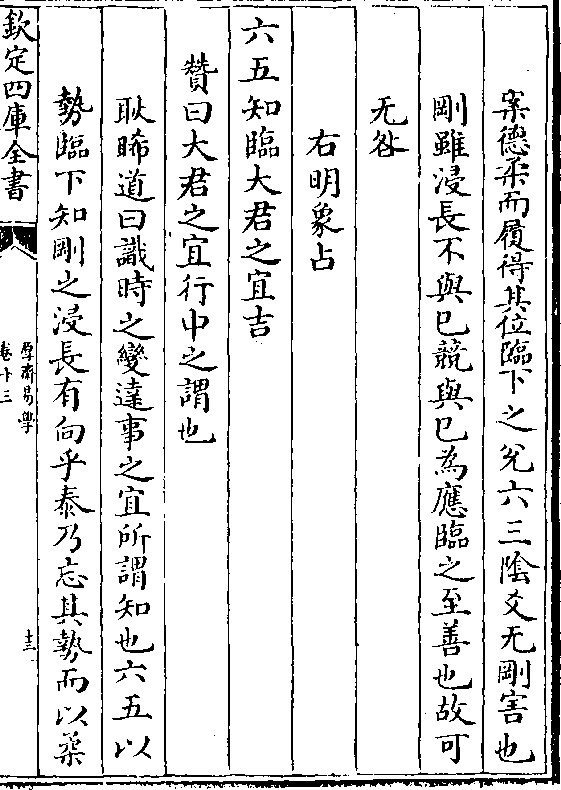 案德柔而履得其位臨下之兊六三陰爻无剛害也
剛雖浸長不與已競與已為應臨之至善也故可
无咎
右明象占
六五知臨大君之宜吉
賛曰大君之宜行中之謂也
耿睎道曰識時之變達事之宜所謂知也六五以
勢臨下知剛之浸長有向乎泰乃忘其勢而以柔
欽定四庫全書
厚齋易學
卷十三